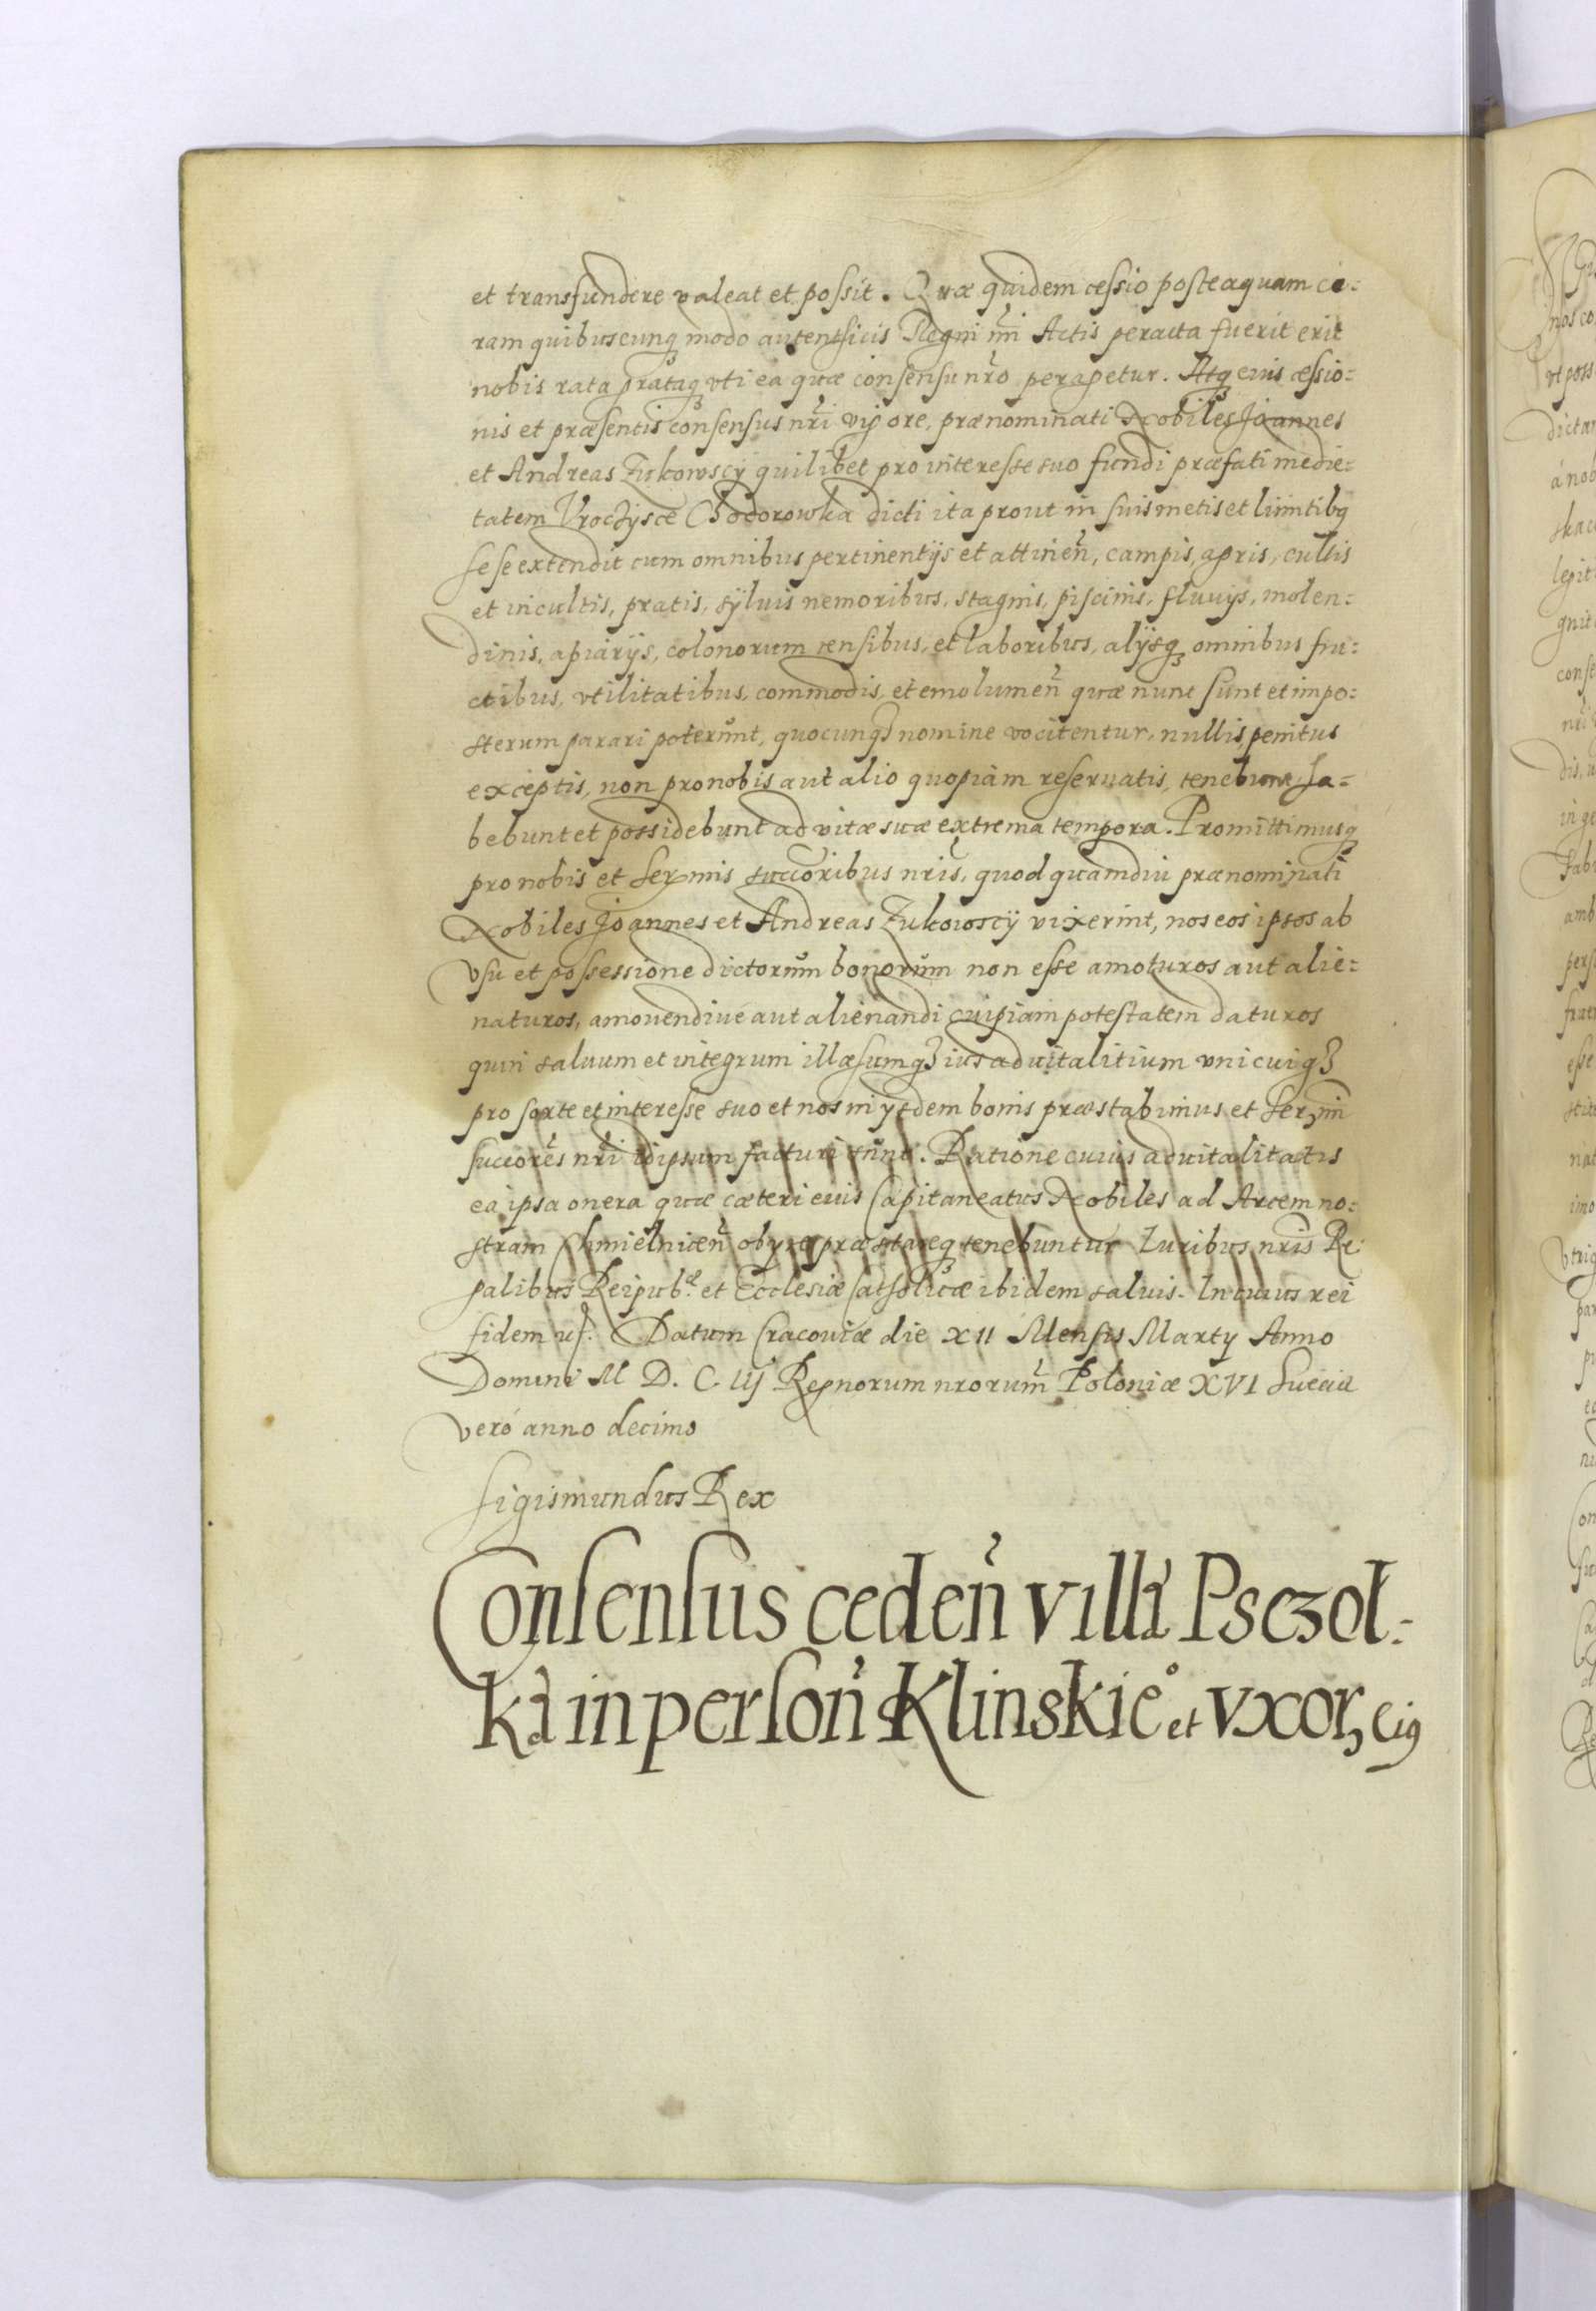 et transfundere valeat et possit. Quæ quidem cessio posteaquam co:
ram quibuscunq modo autenthicis Regni nri Actis peracta fuerit erit
nobis rata grataq vti ea quæ consensu nro peragetur. Atq eius cessio:
nis et præsentis consensus nri vigore, prænominati Nobiles Joannes
et Andreas Zukowscÿ quilibet pro interesse suo fundi præfati medie:
tatem Vroczysce Chodorowka dicti ita prout in suis metis et limitibq
sese extendit cum omnibus pertinentijs et attinen, campis, agris, cultis
et incultis, pratis, sÿluis nemoribus, stagnis, piscinis, fluvijs, molen:
dinis, apiarijs, colonorum censibus, et laboribus, alijsq omnibus fru:
ctibus, vtilitatibus, commodis, et emolumen quæ nunc sunt et impo:
sterum parari poterunt, quocunq nomine vocitentur, nullis penitus
exceptis, non pro nobis aut alio quopiam reseruatis, tenebunt ha:
bebunt et possidebunt ad vitæ suæ extrema tempora. Promittimusq
pro nobis et Sermis succoribus nris, quod quamdiu prænominati
Nobiles Joannes et Andreas Zukowscÿ vixerint, nos eos ipsos ab
vsu et possessione dictorum bonorum non esse amoturos aut alie:
naturos, amouendiue aut alienandi cuipiam potestatem daturos
quin saluum et integrum illæsumq ius aduitalitium vnicuiq
pro sorte et interesse suo et nos in ysdem bonis præstabimus et Sermi
succores nri idipsum facturi sunt. Ratione cuius aduitalitatis
ea ipsa onera quæ cæteri euis Capitaneatus Nobiles ad Arcem no:
stram Chmielnicen obire præstareq tenebuntur Iuribus nris Re
galibus Reipubæ et Ecclesiæ Catholicæ ibidem saluis. In cuius rei
fidem Datum Cracouiæ die XII Mensis Martij Anno
Domini M D. C. iij Regnorum nrorum Poloniæ XVI Sueciæ
vero anno decimo
Sigismundus Rex
Consensus ceden villa Psczol:
ka in person Klinskieo et vxor, eiq